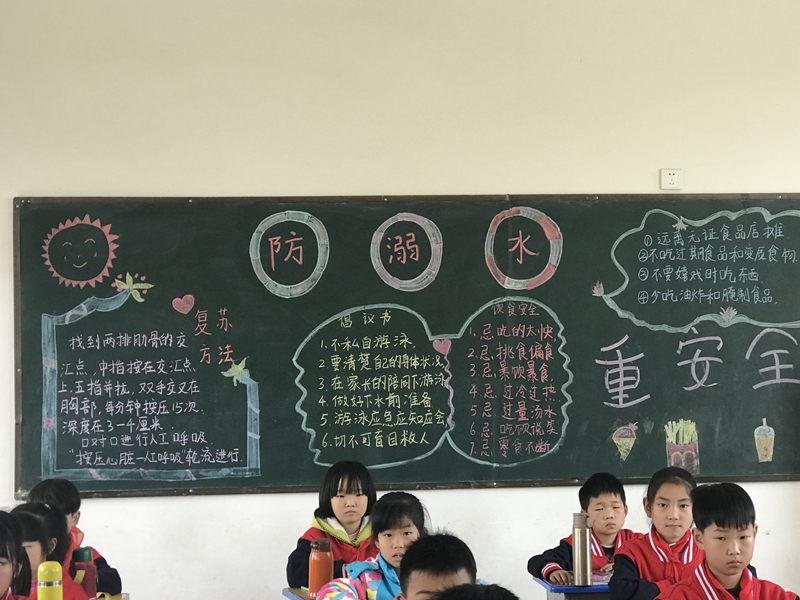 防 溺 水
复苏
方法
找到两排肋骨的交
汇点，中指按在交汇点
上，五指并拢，双手交叉在
胸部，每分钟按压15次.
深度在3—4厘米.
口对口进行人工呼吸.
"按压心脏—人工呼吸"轮流进行.
倡议书
1.不私自游泳.
2.要清楚自己的身体状况.
3.在家长的陪同下游泳
4.做好下水前准备
5.游泳应急应知应会
6.切不可盲目救人
饮食安全
1.忌吃的太快.
2.忌挑食偏食
3.忌暴饮暴食.
4.忌过冷过热.
5.忌过量汤水
6.忌吃饭说笑
7.忌零食不断
①远离无证食品店摊
②不吃过期食品和变质食物.
③不要嬉戏时吃东西
④少吃油炸和腌制食品.
重安全